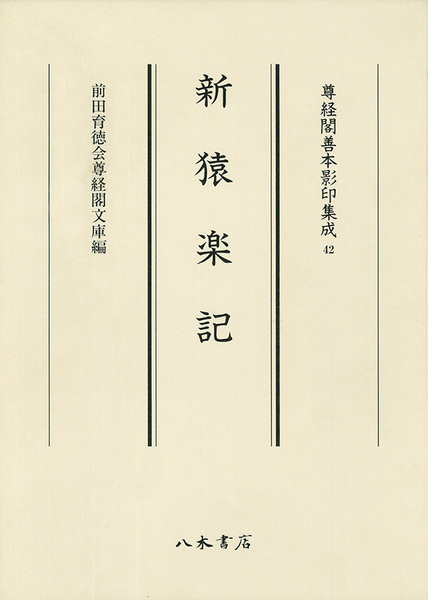 尊経閣善本影印集成 42
新猿楽記
前田育徳会尊経閣文庫編
八木書店